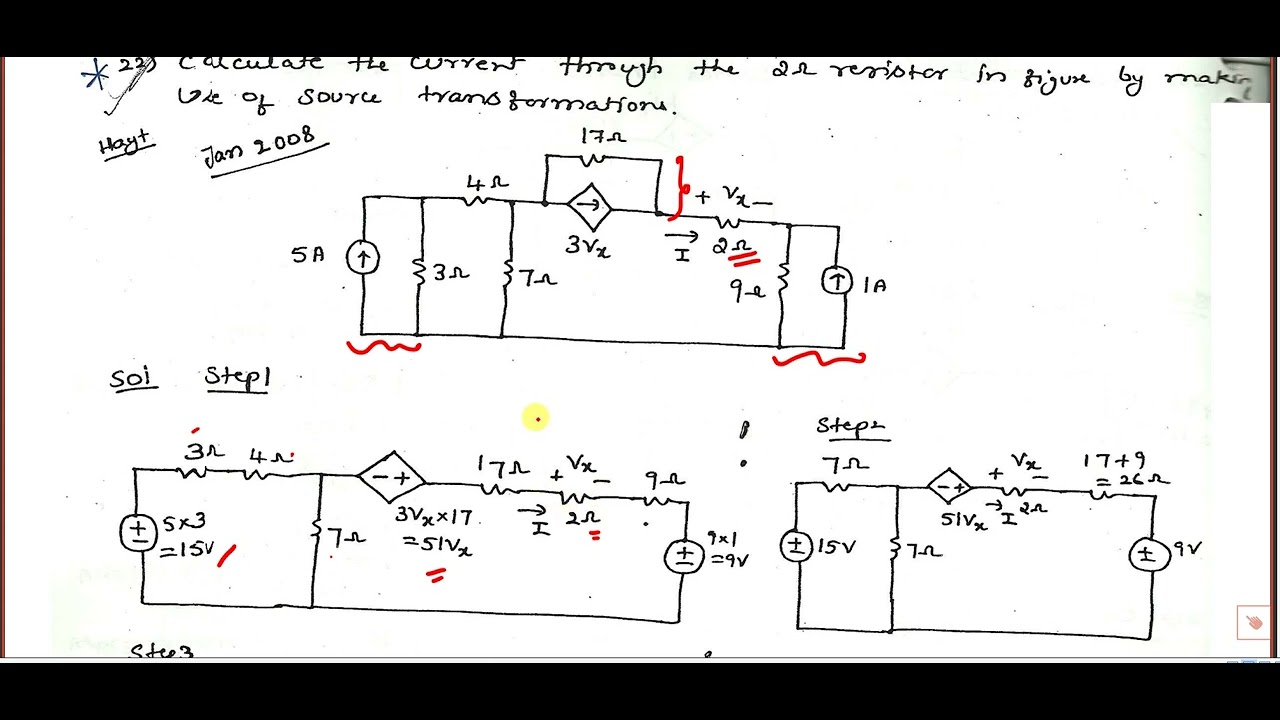 22) Calculate the current through the 2Ω resistor in figure by makin
Use of source transformations.
Hayt
Jan 2008
17Ω
4Ω
+ Vx −
3Vx
I
2Ω
5A
3Ω
7Ω
9Ω
1A
Sol Step1
Step2
3Ω
4Ω
17Ω
+ Vx −
9Ω
5×3
=15V
7Ω
3Vx×17
=51Vx
I
2Ω
9×1
=9V
7Ω
+ Vx −
17+9
=26Ω
51Vx
I
2Ω
15V
7Ω
9V
Step3